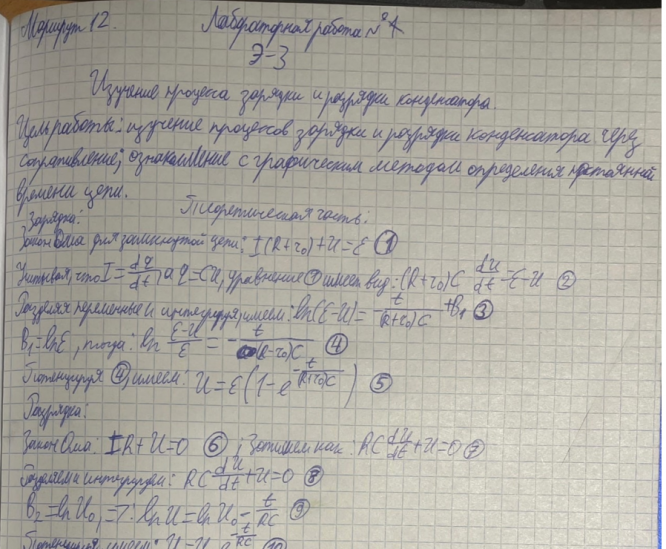 Маршрут 12.
Лабораторная работа №4
Э-3
Изучение процесса зарядки и розрядки конденсатора.
Цель работы: изучение процессов зарядки и розрядки конденсатора через
сопративление; ознакомление с графическим методом определения постоянной
времени цепи.
Теоретическая часть:
Зарядка:
Закон Ома для замкнутой цепи: I(R+r₀)+U=ε ①
Учитывая, что I=dq/dt, а q=CU, уравнение ① имеет вид: (R+r₀)C dU/dt=ε-U ②
Разделяя переменные и интегрируя, имеем: ln(ε-U)=-t/(R+r₀)C+B₁ ③
B₁=lnε, тогда: ln (ε-U)/ε = -t/(R-r₀)C ④
Потенцируя ④, имеем: U=ε(1-e^(-t/(R+r₀)C)) ⑤
Разрядка:
Закон Ома: IR+U=0 ⑥; Запишем как: RC dU/dt+U=0 ⑦
Разделяем и интегрируем: RC dU/dt+U=0 ⑧
B₂=lnU₀, =>: lnU=lnU₀-t/RC ⑨